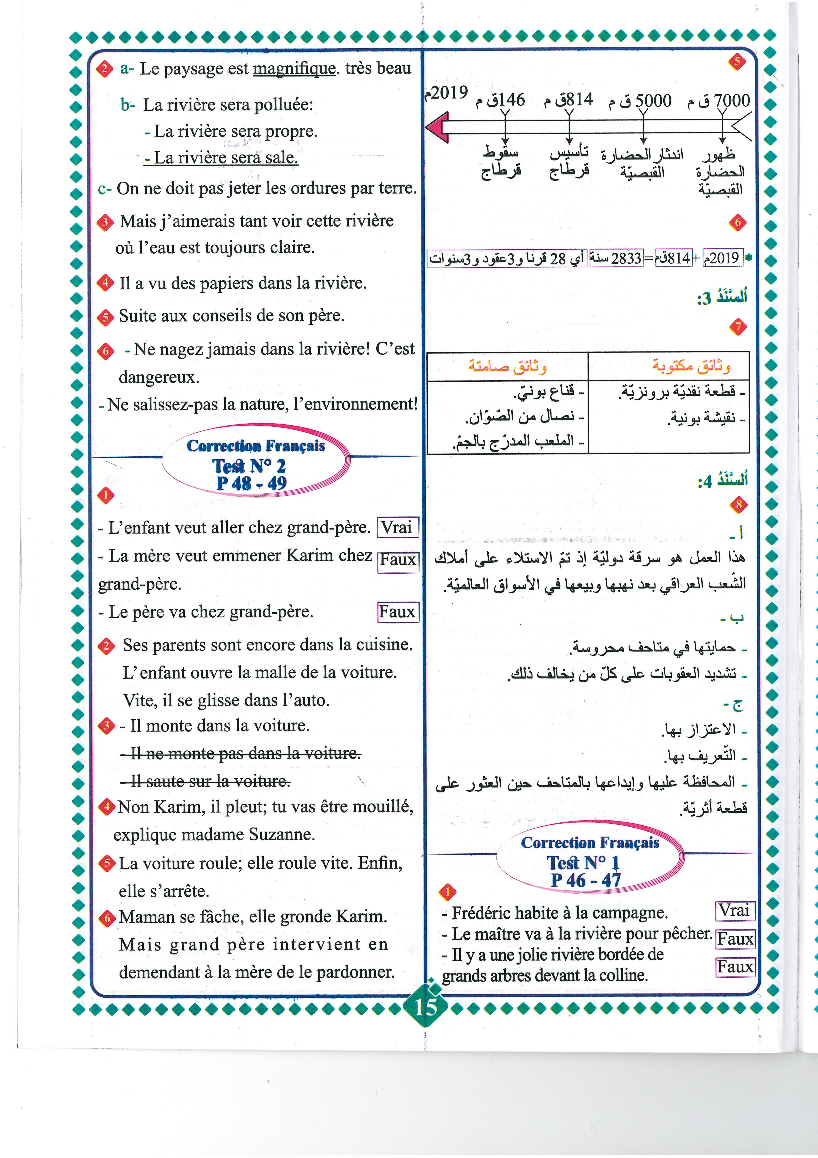 5
7000 ق م 5000 ق م 814 ق م 146 ق م 2019م
ظهور الحضارة القبصيّة
اندثار الحضارة القبصيّة
تأسيس قرطاج
سقوط قرطاج
6
2019م + 814ق م = 2833 سنة أي 28 قرنا و3عقود و3سنوات
ألسّنَدُ 3:
7
وثائق مكتوبة
- قطعة نقديّة برونزيّة.
- نقيشة بونية.
وثائق صامتة
- قناع بونيّ.
- نصال من الصّوّان.
- الملعب المدرّج بالجمّ.
ألسّنَدُ 4:
8
أ -
هذا العمل هو سرقة دوليّة إذ تمّ الاستلاء على أملاك
الشّعب العراقي بعد نهبها وبيعها في الأسواق العالميّة.
ب -
- حمايتها في متاحف محروسة.
- تشديد العقوبات على كلّ من يخالف ذلك.
ج -
- الاعتزاز بها.
- التّعريف بها.
- المحافظة عليها وإيداعها بالمتاحف حين العثور على
قطعة أثريّة.
Correction Français
Test N° 1
P 46 - 47
1
- Frédéric habite à la campagne. Vrai
- Le maître va à la rivière pour pêcher. Faux
- Il y a une jolie rivière bordée de
grands arbres devant la colline. Faux
2 a- Le paysage est magnifique. très beau
b- La rivière sera polluée:
- La rivière sera propre.
- La rivière sera sale.
c- On ne doit pas jeter les ordures par terre.
3 Mais j'aimerais tant voir cette rivière
où l'eau est toujours claire.
4 Il a vu des papiers dans la rivière.
5 Suite aux conseils de son père.
6 - Ne nagez jamais dans la rivière! C'est
dangereux.
- Ne salissez-pas la nature, l'environnement!
Correction Français
Test N° 2
P 48 - 49
1
- L'enfant veut aller chez grand-père. Vrai
- La mère veut emmener Karim chez Faux
grand-père.
- Le père va chez grand-père. Faux
2 Ses parents sont encore dans la cuisine.
L'enfant ouvre la malle de la voiture.
Vite, il se glisse dans l'auto.
3 - Il monte dans la voiture.
- Il ne monte pas dans la voiture.
- Il saute sur la voiture.
4 Non Karim, il pleut; tu vas être mouillé,
explique madame Suzanne.
5 La voiture roule; elle roule vite. Enfin,
elle s'arrête.
6 Maman se fâche, elle gronde Karim.
Mais grand père intervient en
demendant à la mère de le pardonner.
15